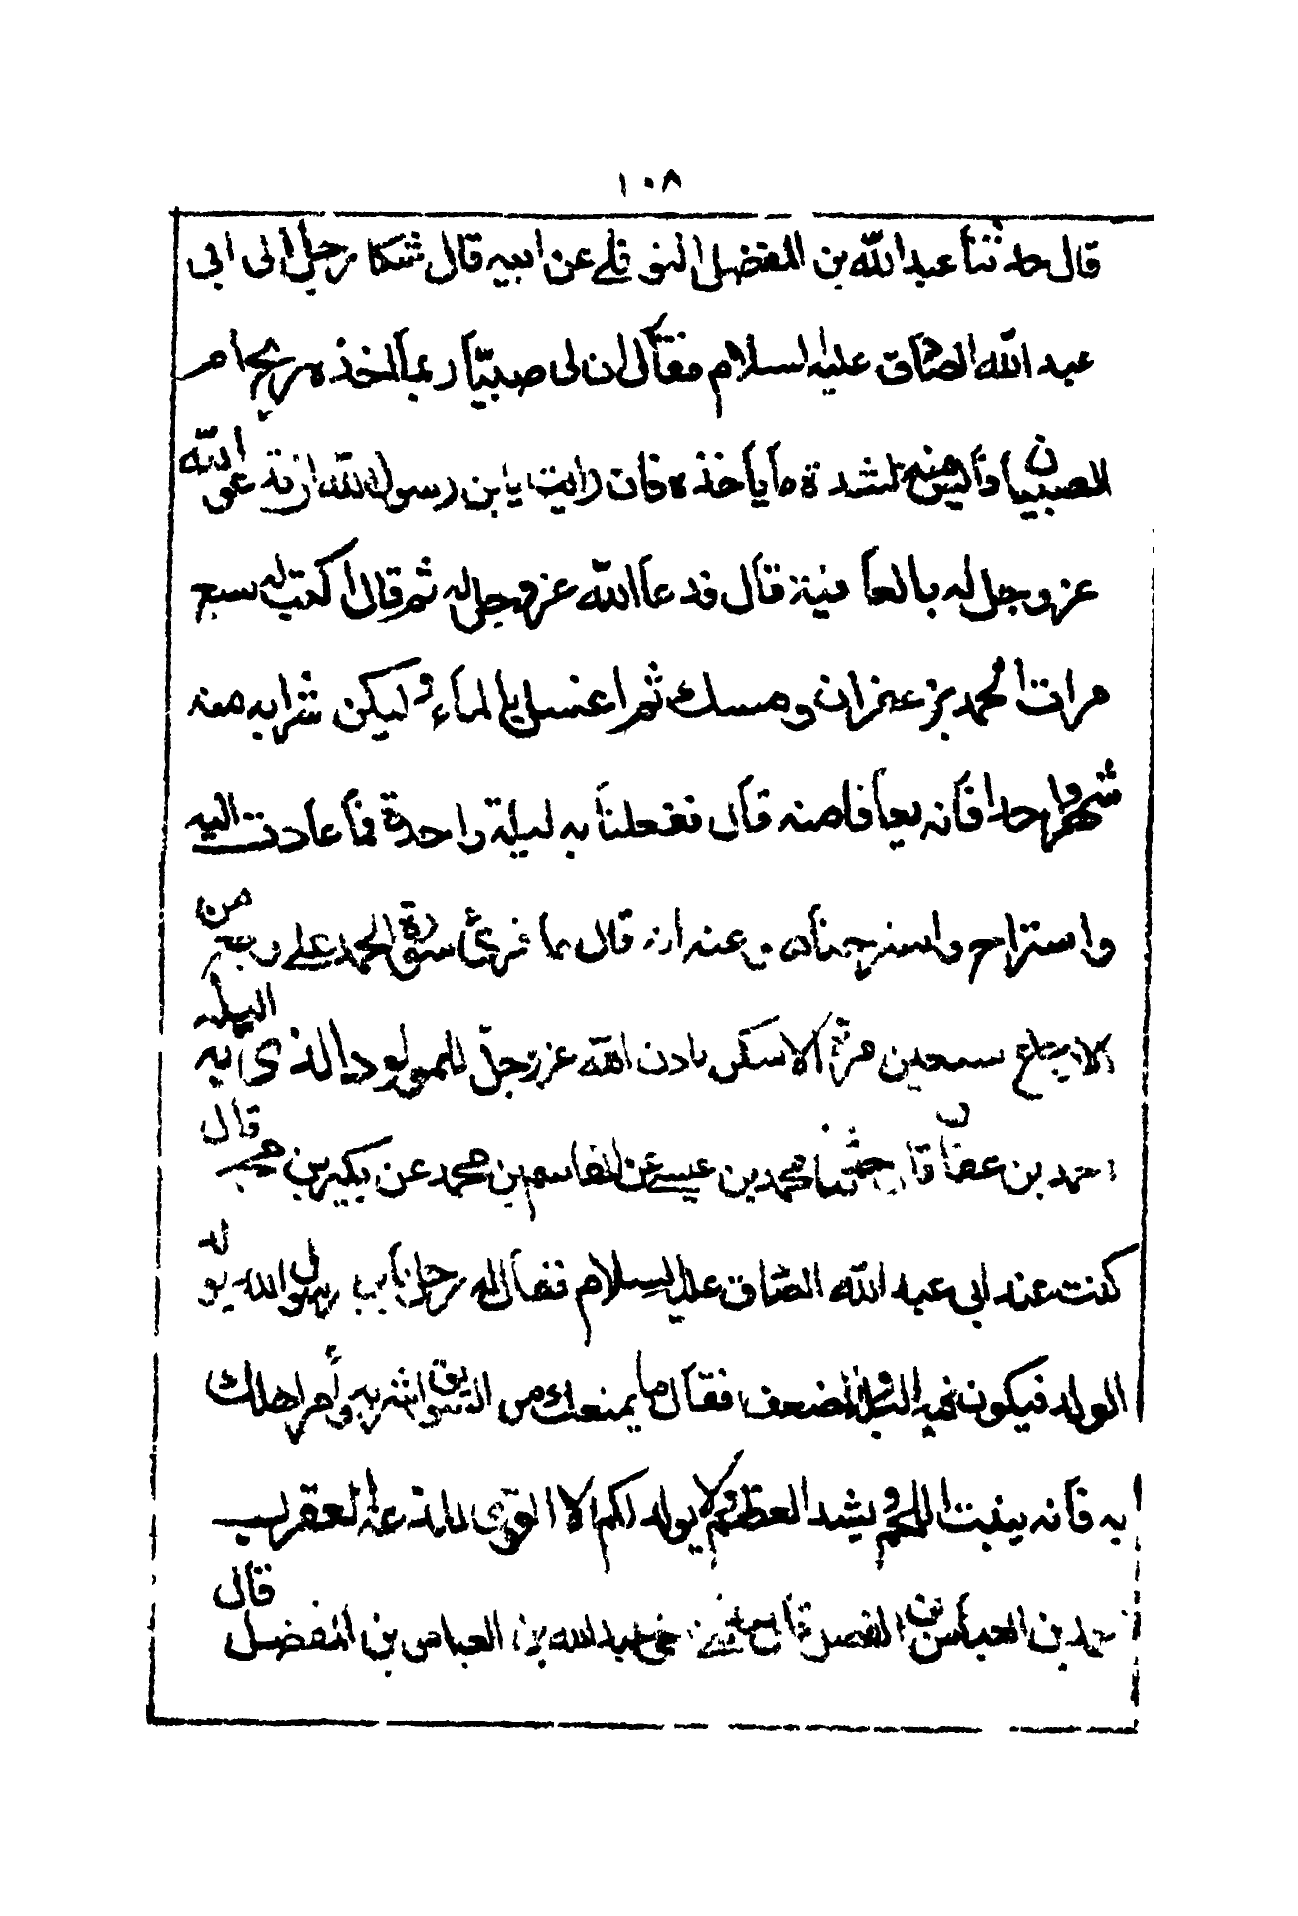 ١٠٨
قال حدثنا عبد الله بن المفضل النوفلي عن ابيه قال شكا رجل الى ابي
عبد الله الصادق عليه السلام فقال ان لي صبيا ربما اخذه ريح ام
الصبيان فآيس منه لشدة ما يأخذه فان رايت يابن رسول الله ان تدعو الله
عز وجل له بالعافية قال فدعا الله عز وجل له ثم قال اكتب له سبع
مرات الحمد بزعفران ومسك ثم اغسل بالماء وليكن شرابه منه
شهرا واحدا فانه يعافا منه قال ففعلنا به ليلة واحدة فما عادت اليه
واستراح واسترحنا من عنه انه قال ما قرئ سورة الحمد على وجع من
الاوجاع سبعين مرة الا سكن باذن الله عز وجل للمولود الذي به البله
احمد بن غياث قال حدثنا محمد بن عيسى عن القاسم بن محمد عن بكير بن محمد قال
كنت عند ابي عبد الله الصادق عليه السلام فقال له رجل يابن رسول الله يولد له
الولد فيكون فيه البله والضعف فقال ما يمنعك من السويق اشربه وأمر اهلك
به فانه ينبت اللحم ويشد العظم ولا يولد لكم الا القوى لما لدغته العقرب
بن العباس بن المفضل قال عبد الله بن العباس بن المفضل قال